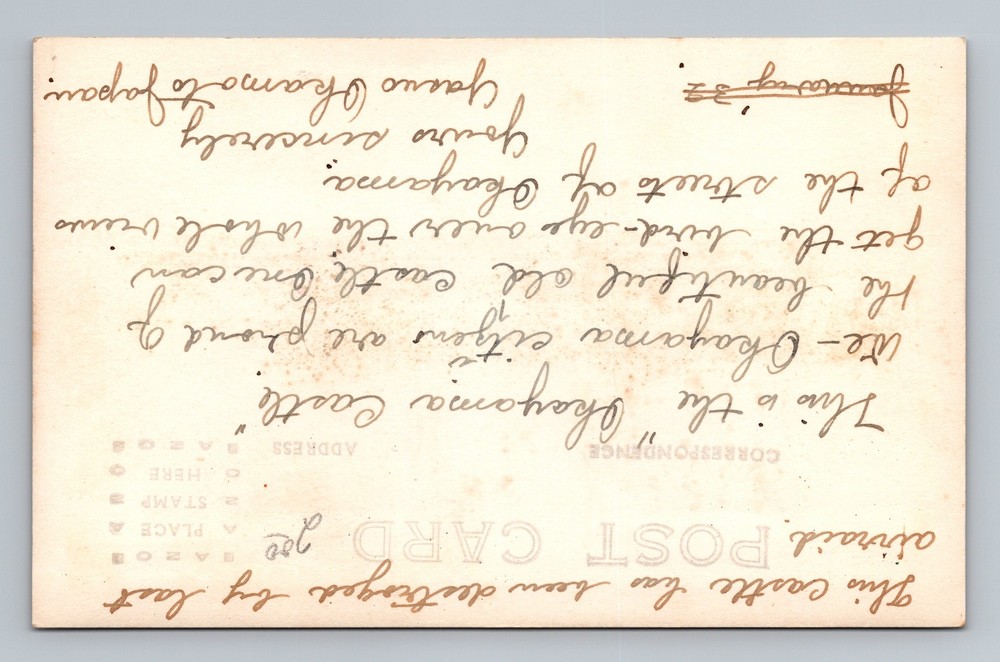 This Castle has been destroyed by last
airraid
POST CARD
200
CORRESPONDENCE
ADDRESS
PLACE
STAMP
HERE
AZO
This is the "Okayama Castle"
We - Okayama citizens are proud of
the beautiful old castle, One can
get the bird-eye over the whole views
of the streets of Okayama.
Yours sincerely
January 32
Yasuo Okamoto Japan.